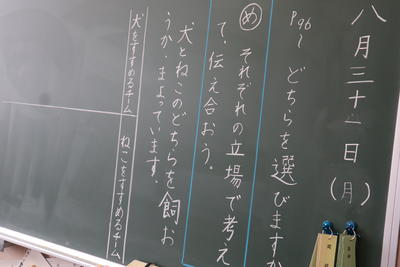 八月三十一日(月)
P96〜 どちらを選びますか
め それぞれの立場で考え
て、伝え合おう。
犬とねこのどちらを飼お
うか、まよっています。
犬をすすめるチーム
ねこをすすめるチーム